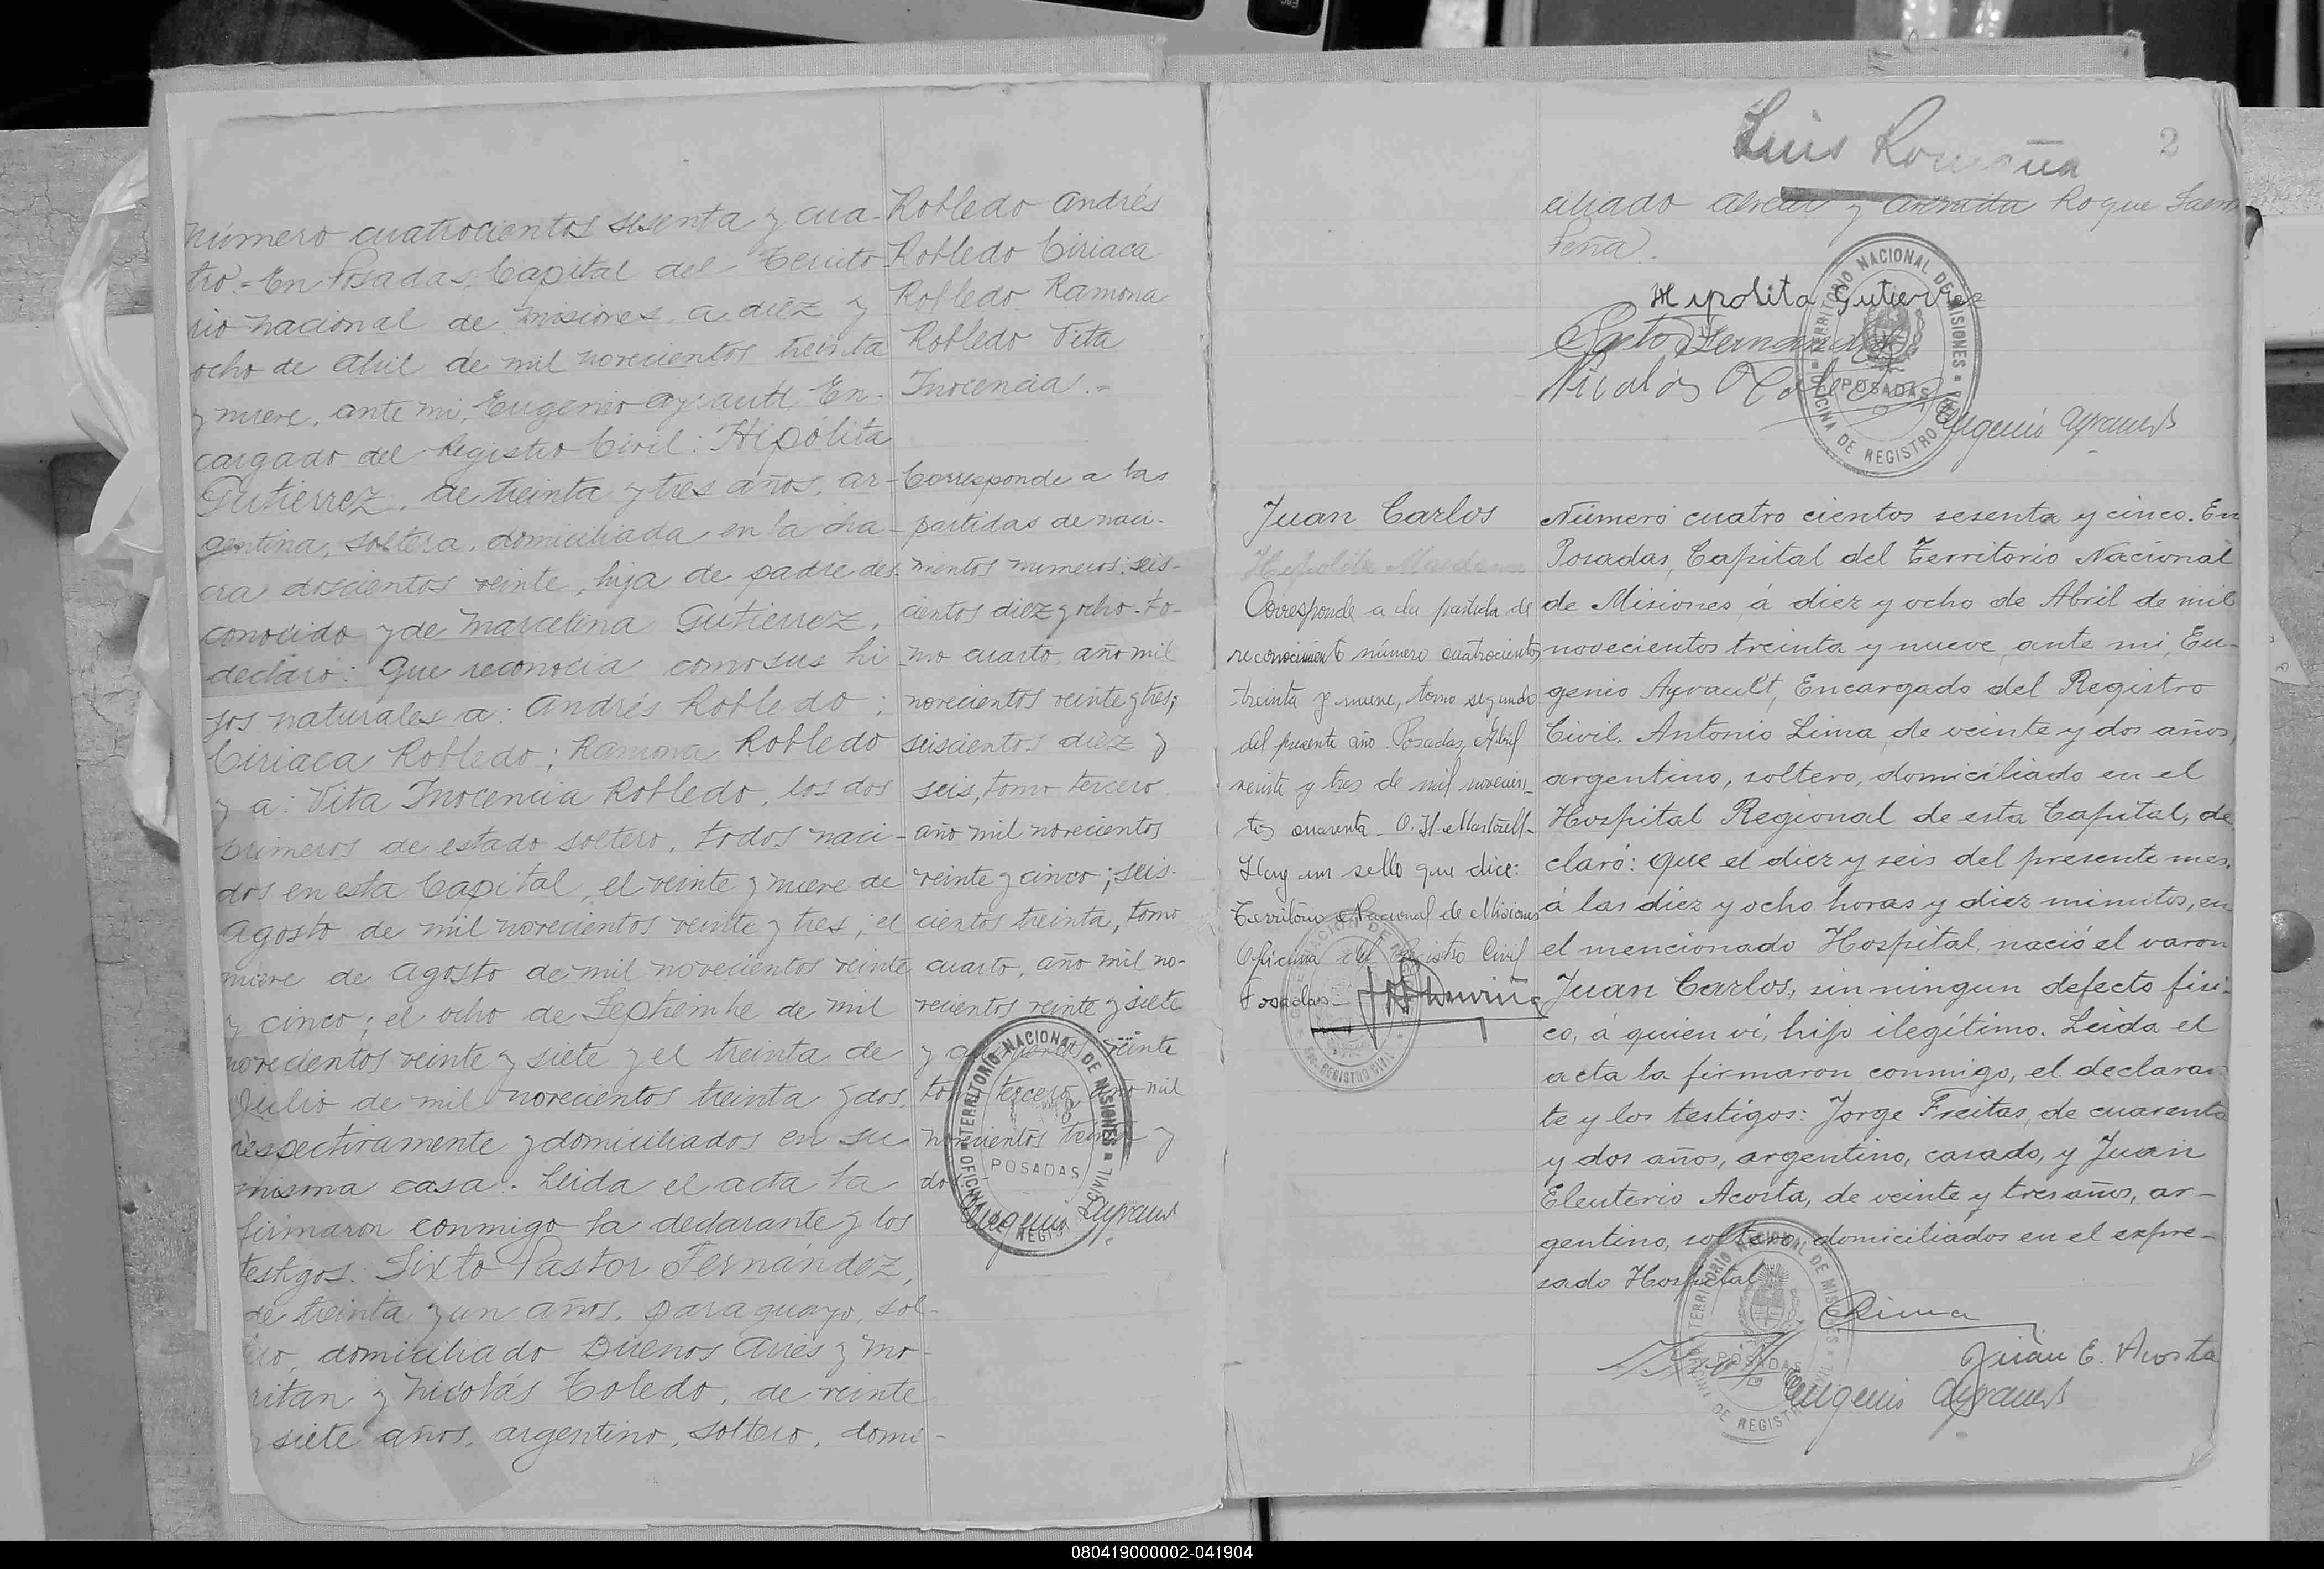 número cuatrocientos sesenta y cua-
tro.- En Posadas, Capital del Territo-
rio nacional de misiones, a diez y
ocho de abril de mil novecientos treinta
y nueve, ante mi, Eugenio Ayrault En-
cargado del Registro Civil: Hipólita
Gutierrez, de treinta y tres años, ar-
gentina, soltera, domiciliada en la cha-
cra doscientos veinte, hija de padre des-
conocido y de Marcelina Gutierrez,
declaró: Que reconocia como sus hi-
jos naturales a: Andrés Robledo;
Ciriaca Robledo; Ramona Robledo
y a: Vita Inocencia Robledo, los dos
primeros de estado soltero, todos naci-
dos en esta Capital, el veinte y nueve de
Agosto de mil novecientos veinte y tres; el
nueve de agosto de mil novecientos veinte
y cinco; el ocho de Septiembre de mil
novecientos veinte y siete y el treinta de
Julio de mil novecientos treinta y dos,
respectivamente y domiciliados en su
misma casa. Leida el acta la
firmaron conmigo la declarante y los
testigos: Sixto Pastor Fernández,
de treinta y un años, paraguayo, sol-
domiciliado Buenos Aires y
y Nicolás Toledo, de veinte
y siete años, argentino, soltero, domi-
Robledo Andrés
Robledo Ciriaca
Robledo Ramona
Robledo Vita
Inocencia.-
Corresponde a las
partidas de naci-
mientos numeros: seis-
cientos diez y ocho. to-
mo cuarto, año mil
novecientos veinte y tres;
seiscientos diez y
seis, tomo tercero
año mil novecientos
veinte y cinco; seis-
cientos treinta, tomo
cuarto, año mil no-
vecientos veinte y siete
y veinte
tomo tercero, año mil
novecientos treinta y
dos
TERRITORIO NACIONAL DE MISIONES
OFICINA DE REGISTRO CIVIL
POSADAS
Eugenio Ayrault
Luis Romaña
2
ciliado Alvear y Avenida Roque Saenz
Peña.
Hipolita Gutierrez
Sixto Fernandez
Nicolás Toledo
TERRITORIO NACIONAL DE MISIONES
OFICINA DE REGISTRO CIVIL
POSADAS
Eugenio Ayrault
Juan Carlos
Corresponde a la partida de
reconocimiento número cuatrocientos
treinta y nueve, tomo segundo
del presente año. Posadas, Abril
veinte y tres de mil novecien-
tos cuarenta
Hay un sello que dice:
Territorio Nacional de Misiones
Oficina del Registro Civil
Posadas-
Número cuatro cientos sesenta y cinco. En
Posadas, Capital del Territorio Nacional
de Misiones, á diez y ocho de Abril de mil
novecientos treinta y nueve, ante mi, Eu-
genio Ayrault, Encargado del Registro
Civil. Antonio Lima, de veinte y dos años,
argentino, soltero, domiciliado en el
Hospital Regional de esta Capital, de
claró: Que el diez y seis del presente mes,
á las diez y ocho horas y diez minutos, en
el mencionado Hospital, nació el varon
Juan Carlos, sin ningun defecto físi-
co, á quien ví, hijo ilegítimo. Leida el
acta la firmaron conmigo, el declaran
te y los testigos: Jorge Freitas, de cuarenta
y dos años, argentino, casado, y Juan
Eleuterio Acosta, de veinte y tres años, ar-
gentino, soltero, domiciliados en el expre-
sado Hospital
TERRITORIO NACIONAL DE MISIONES
OFICINA DE REGISTRO CIVIL
POSADAS
Lima
Juan E. Acosta
Eugenio Ayrault
080419000002-041904